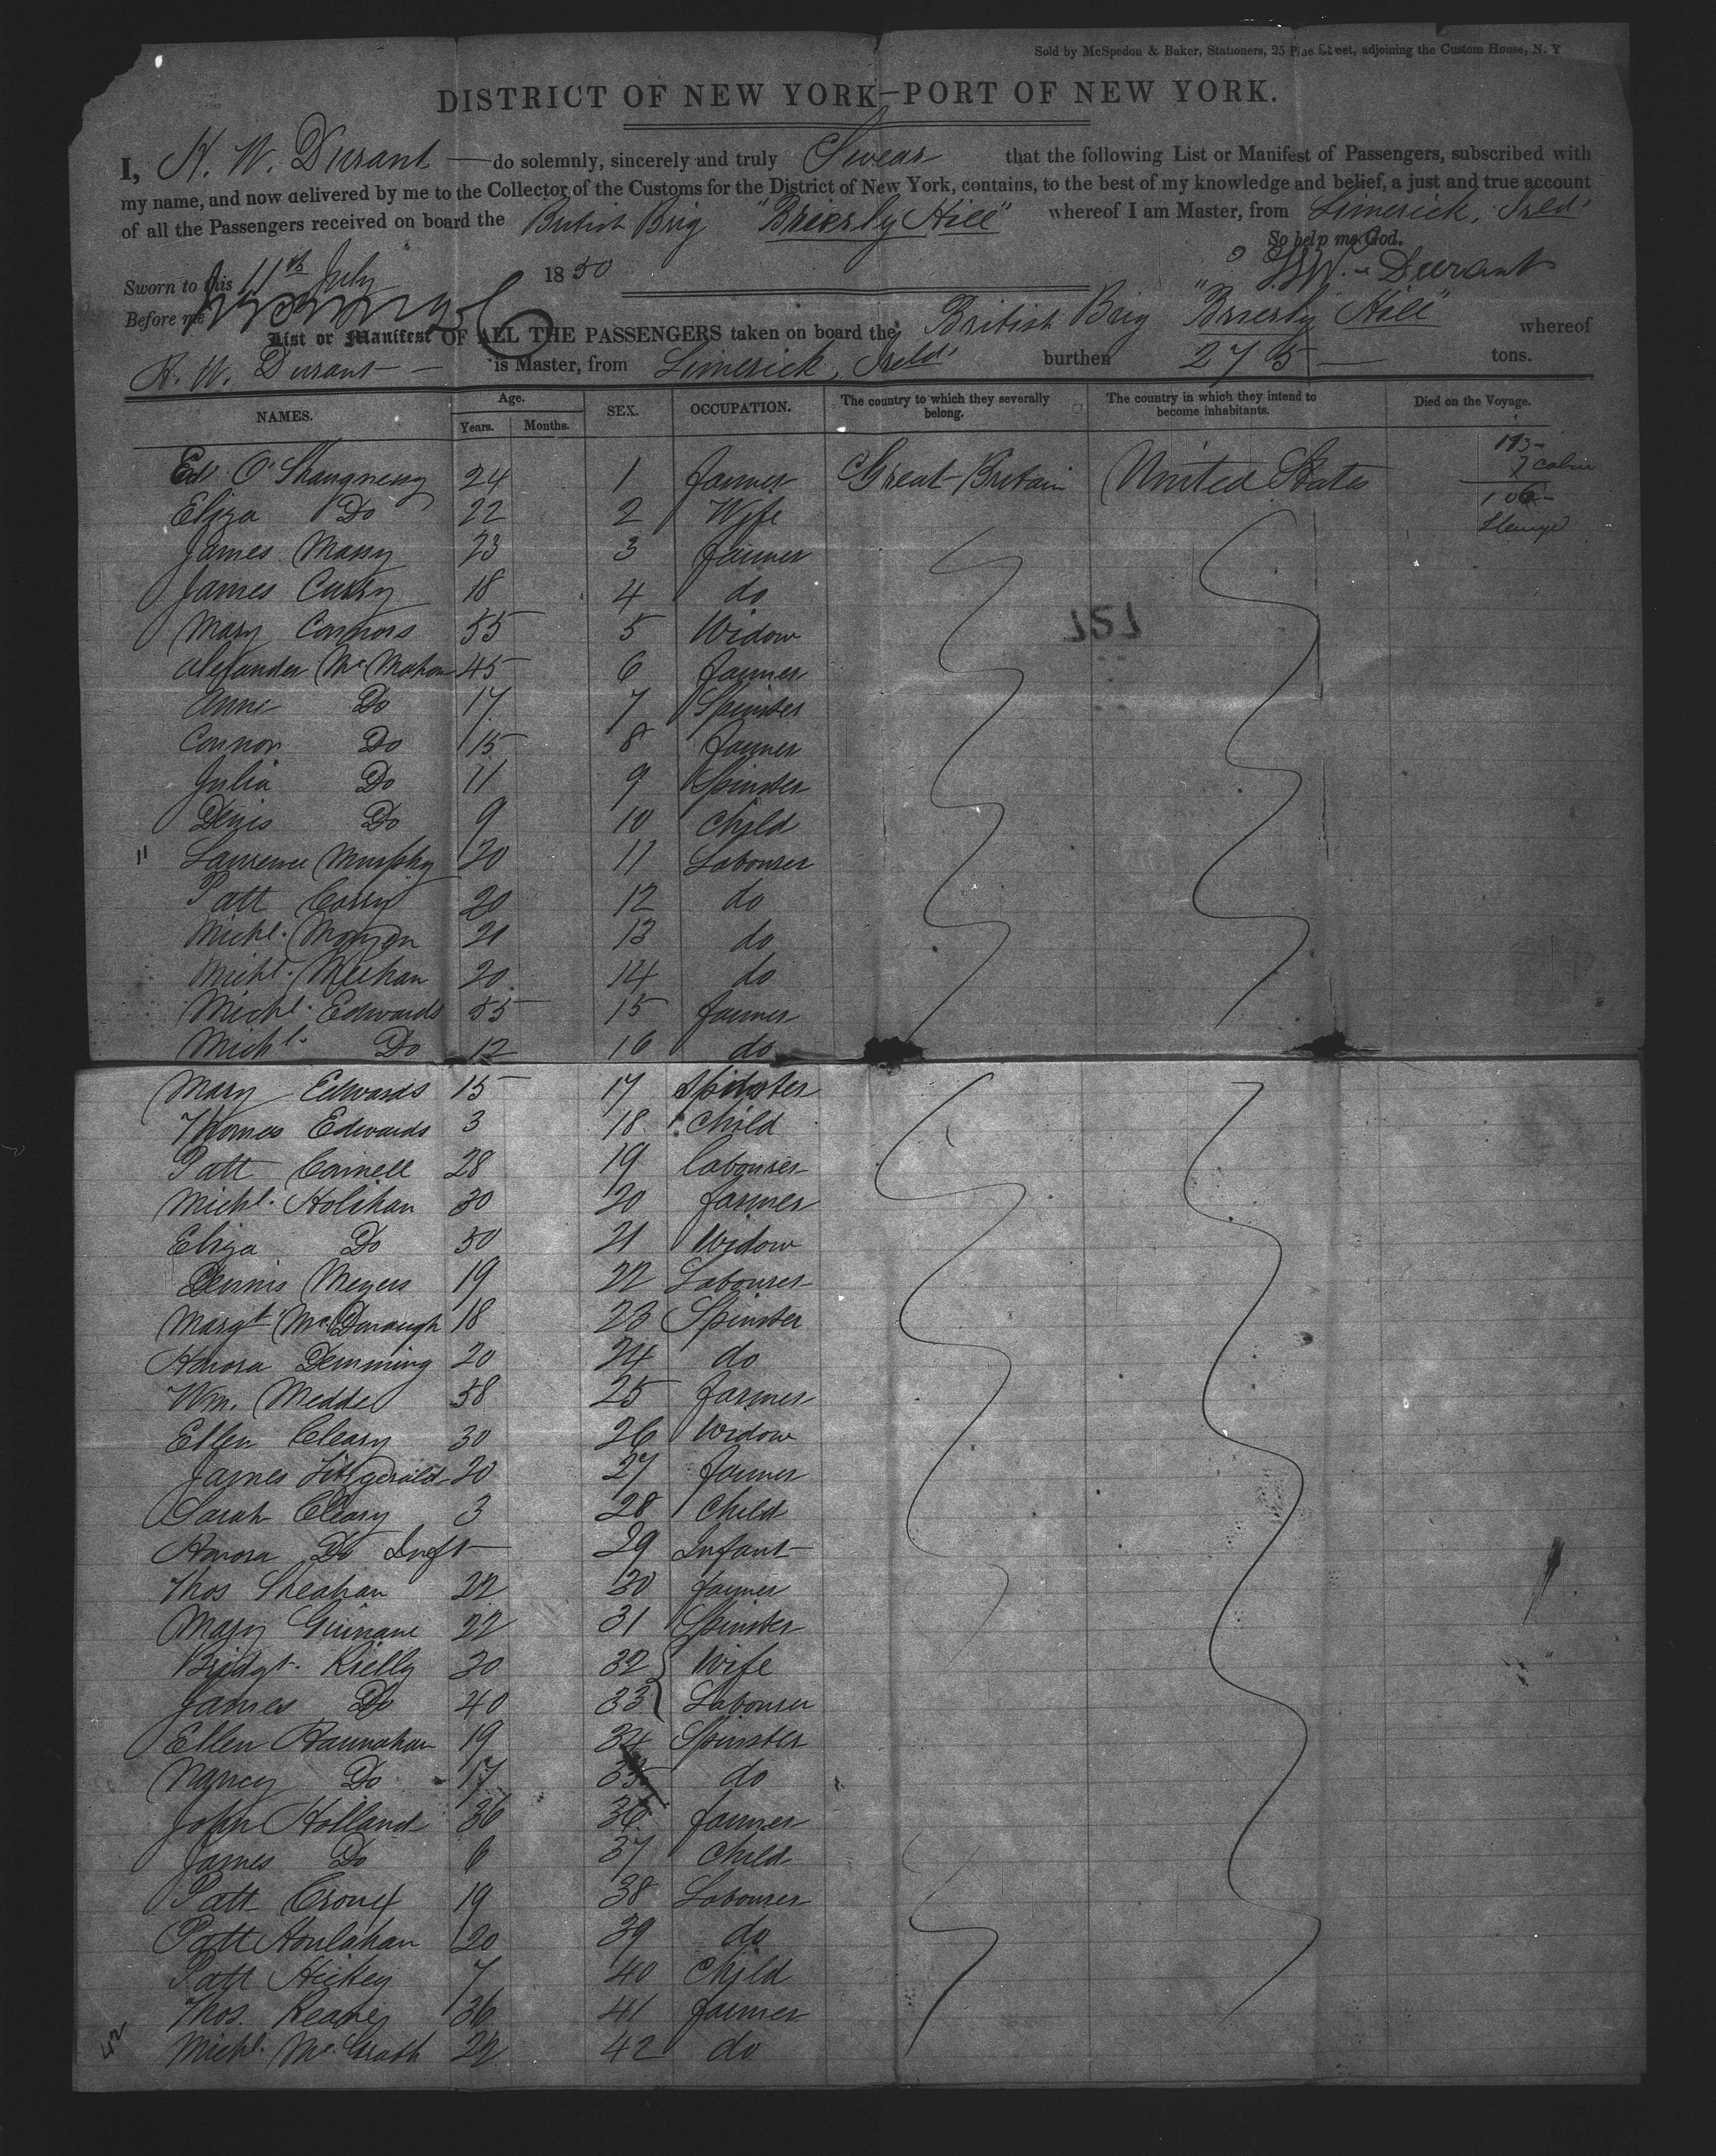 Sold by McSpedon & Baker, Stationers, 25 Pine Street, adjoining the Custom House, N. Y
DISTRICT OF NEW YORK—PORT OF NEW YORK.
I, H. W. Durant do solemnly, sincerely and truly Swear that the following List or Manifest of Passengers, subscribed with
my name, and now delivered by me to the Collector of the Customs for the District of New York, contains, to the best of my knowledge and belief, a just and true account
of all the Passengers received on board the British Brig "Brierly Hill" whereof I am Master, from Limerick, Ireld.
So help me God.
Sworn to this 11th July 1850 H. W. Durant
Before me
List or Manifest OF ALL THE PASSENGERS taken on board the British Brig "Brierly Hill" whereof
H. W. Durant is Master, from Limerick, Ireld. burthen 275 tons.
NAMES. Age. Years. Months. SEX. OCCUPATION. The country to which they severally belong. The country in which they intend to become inhabitants. Died on the Voyage.
Ed. O'Shaugnessy 24 1 farmer Great Britain United States
7 cabin
106
Eliza Do 22 2 Wife
James Massy 23 3 farmer
James Curry 18 4 do
Mary Connors 55 5 Widow
151
Alexander McMahon 45 6 farmer
Anne Do 17 7 Spinster
Connor Do 15 8 farmer
Julia Do 11 9 Spinster
Denis Do 9 10 Child
" Laurence Murphy 20 11 Labourer
Patt 20 12 do
Michl. 21 13 do
Michl. Meehan 20 14 do
Michl. Edwards 55 15 farmer
Michl. Do 12 16 do
Mary Edwards 15 17 Spinster
Thomas Edwards 3 18 Child
Patt Connell 28 19 Labourer
Michl. Holihan 30 20 farmer
Eliza Do 50 21 Widow
Dennis Meyers 19 22 Labourer
Margt. McDonough 18 23 Spinster
Honora Demming 20 24 do
Wm. 58 25 farmer
Ellen Cleary 30 26 Widow
James Fitzgerald 20 27 farmer
Sarah Cleary 3 28 Child
Honora Do Inft 29 Infant
Thos Sheahan 22 30 farmer
Mary Guinane 22 31 Spinster
Bridgt. Kielly 30 32 Wife
James Do 40 33 Labourer
Ellen Hannahan 19 34 Spinster
Nancy Do 17 35 do
John Holland 36 36 farmer
James Do 6 37 Child
Patt 19 38 Labourer
Patt Houlahan 20 39 do
Patt Hickey 7 40 Child
Thos. Keane 36 41 farmer
42 Michl. McGrath 22 42 do